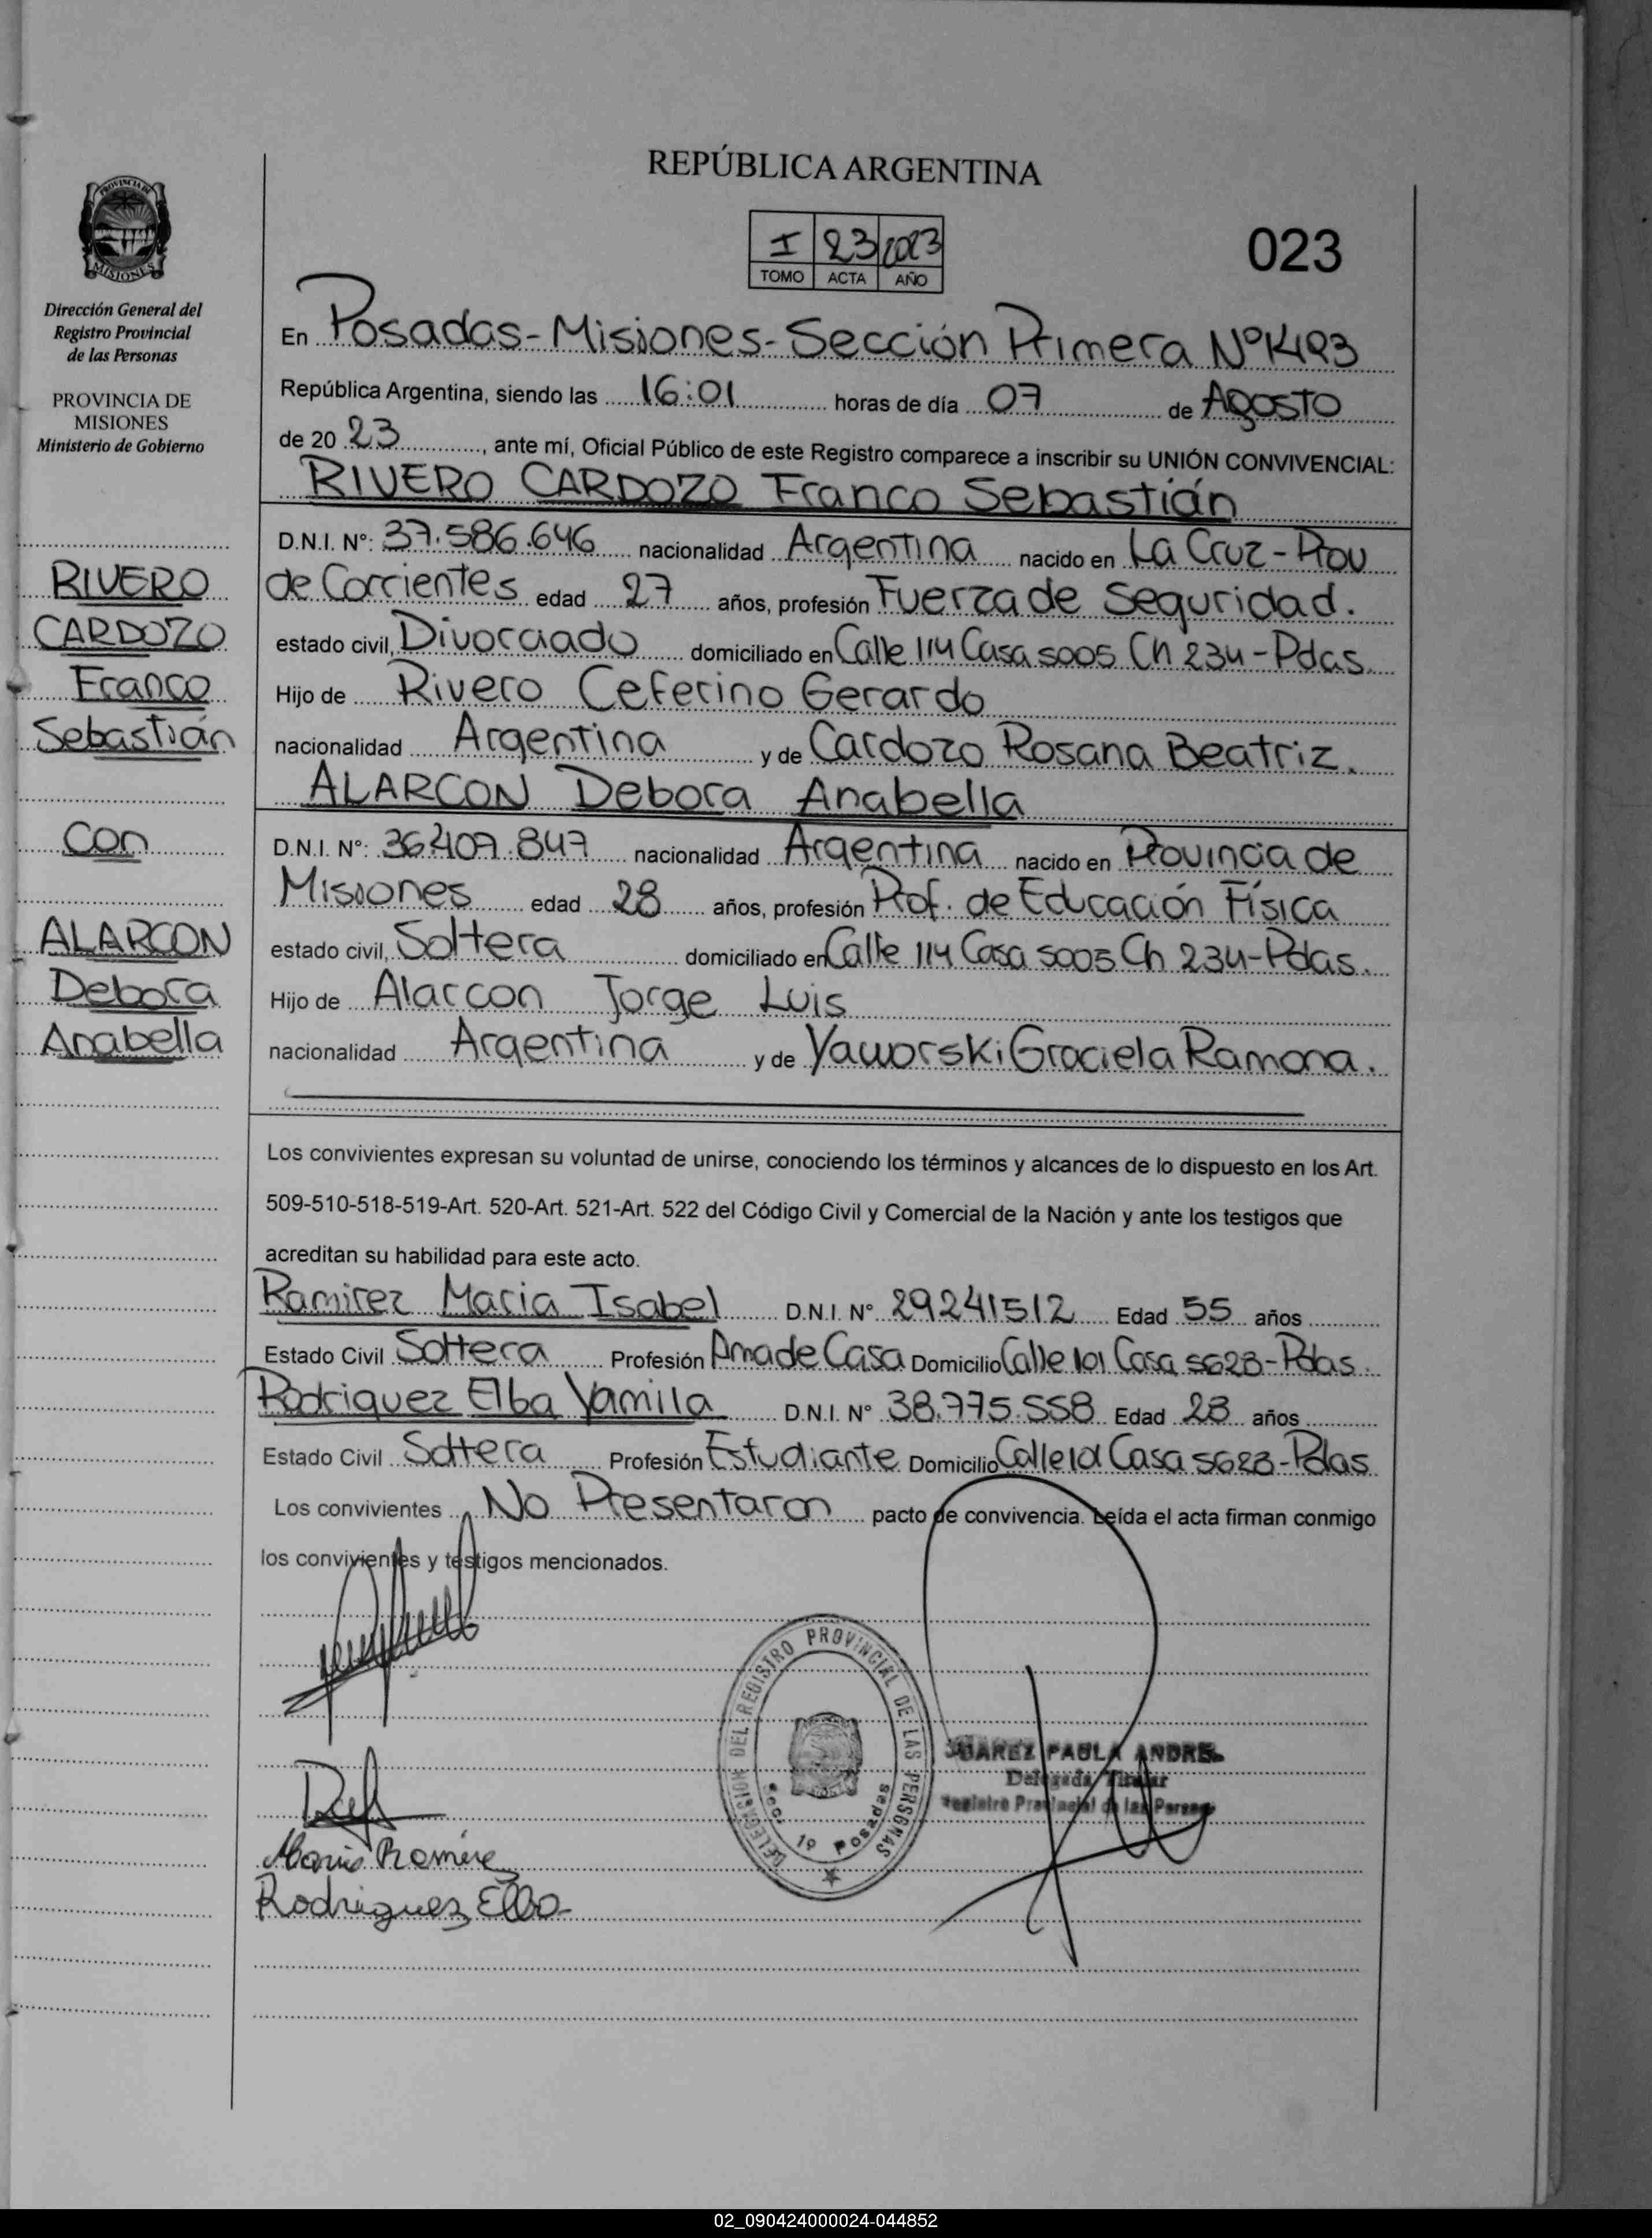 REPÚBLICA ARGENTINA
I 23 2023
TOMO ACTA AÑO
023
PROVINCIA DE
MISIONES
Dirección General del
Registro Provincial
de las Personas
PROVINCIA DE
MISIONES
Ministerio de Gobierno
RIVERO
CARDOZO
Franco
Sebastián
Con
ALARCON
Debora
Anabella
En Posadas-Misiones-Sección Primera Nº
República Argentina, siendo las 16:01 horas de día 07 de Agosto
de 20 23, ante mí, Oficial Público de este Registro comparece a inscribir su UNIÓN CONVIVENCIAL:
RIVERO CARDOZO Franco Sebastián
D.N.I. Nº: 37.586.646 nacionalidad Argentina nacido en La Cruz-Prov
de Corrientes edad 27 años, profesión Fuerza de Seguridad.
estado civil, Divorciado domiciliado en Calle 114 Casa 5005 Ch 234-Pdas.
Hijo de Rivero Ceferino Gerardo
nacionalidad Argentina y de Cardozo Rosana Beatriz.
ALARCON Debora Anabella
D.N.I. Nº: 36.407.847 nacionalidad Argentina nacido en Provincia de
Misiones edad 28 años, profesión Prof. de Educación Física
estado civil, Soltera domiciliado en Calle 114 Casa 5005 Ch 234-Pdas.
Hijo de Alarcon Jorge Luis
nacionalidad Argentina y de Yaworski Graciela Ramona.
Los convivientes expresan su voluntad de unirse, conociendo los términos y alcances de lo dispuesto en los Art.
509-510-518-519-Art. 520-Art. 521-Art. 522 del Código Civil y Comercial de la Nación y ante los testigos que
acreditan su habilidad para este acto.
Ramirez Maria Isabel D.N.I. Nº 29241512 Edad 55 años
Estado Civil Soltera Profesión Ama de Casa Domicilio Calle 101 Casa 5623-Pdas.
Rodriguez Elba Yamila D.N.I. Nº 38.775.558 Edad 28 años
Estado Civil Soltera Profesión Estudiante Domicilio Calle 101 Casa 5623-Pdas
Los convivientes No Presentaron pacto de convivencia. Leída el acta firman conmigo
los convivientes y testigos mencionados.
DELEGACION DEL REGISTRO PROVINCIAL DE LAS PERSONAS
Secc. 1º Posadas
JUAREZ PAULA ANDREA
Delegada Titular
Registro Provincial de las Personas
Maria Ramirez
Rodriguez Elba
02_090424000024-044852